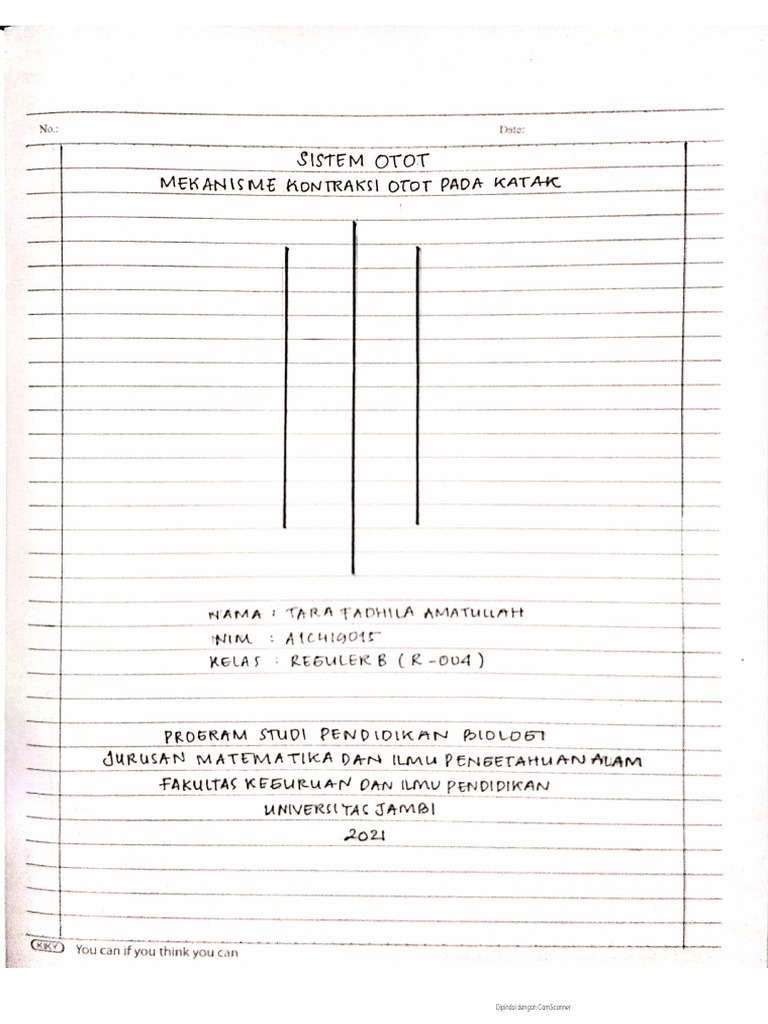 No.:
Date:
SISTEM OTOT
MEKANISME KONTRAKSI OTOT PADA KATAK
NAMA : TARA FADHILA AMATULLAH
NIM : A1C419015
KELAS : REGULER B ( R - 004 )
PROGRAM STUDI PENDIDIKAN BIOLOGI
JURUSAN MATEMATIKA DAN ILMU PENGETAHUAN ALAM
FAKULTAS KEGURUAN DAN ILMU PENDIDIKAN
UNIVERSITAS JAMBI
2021
KIKY You can if you think you can
Dipindai dengan CamScanner